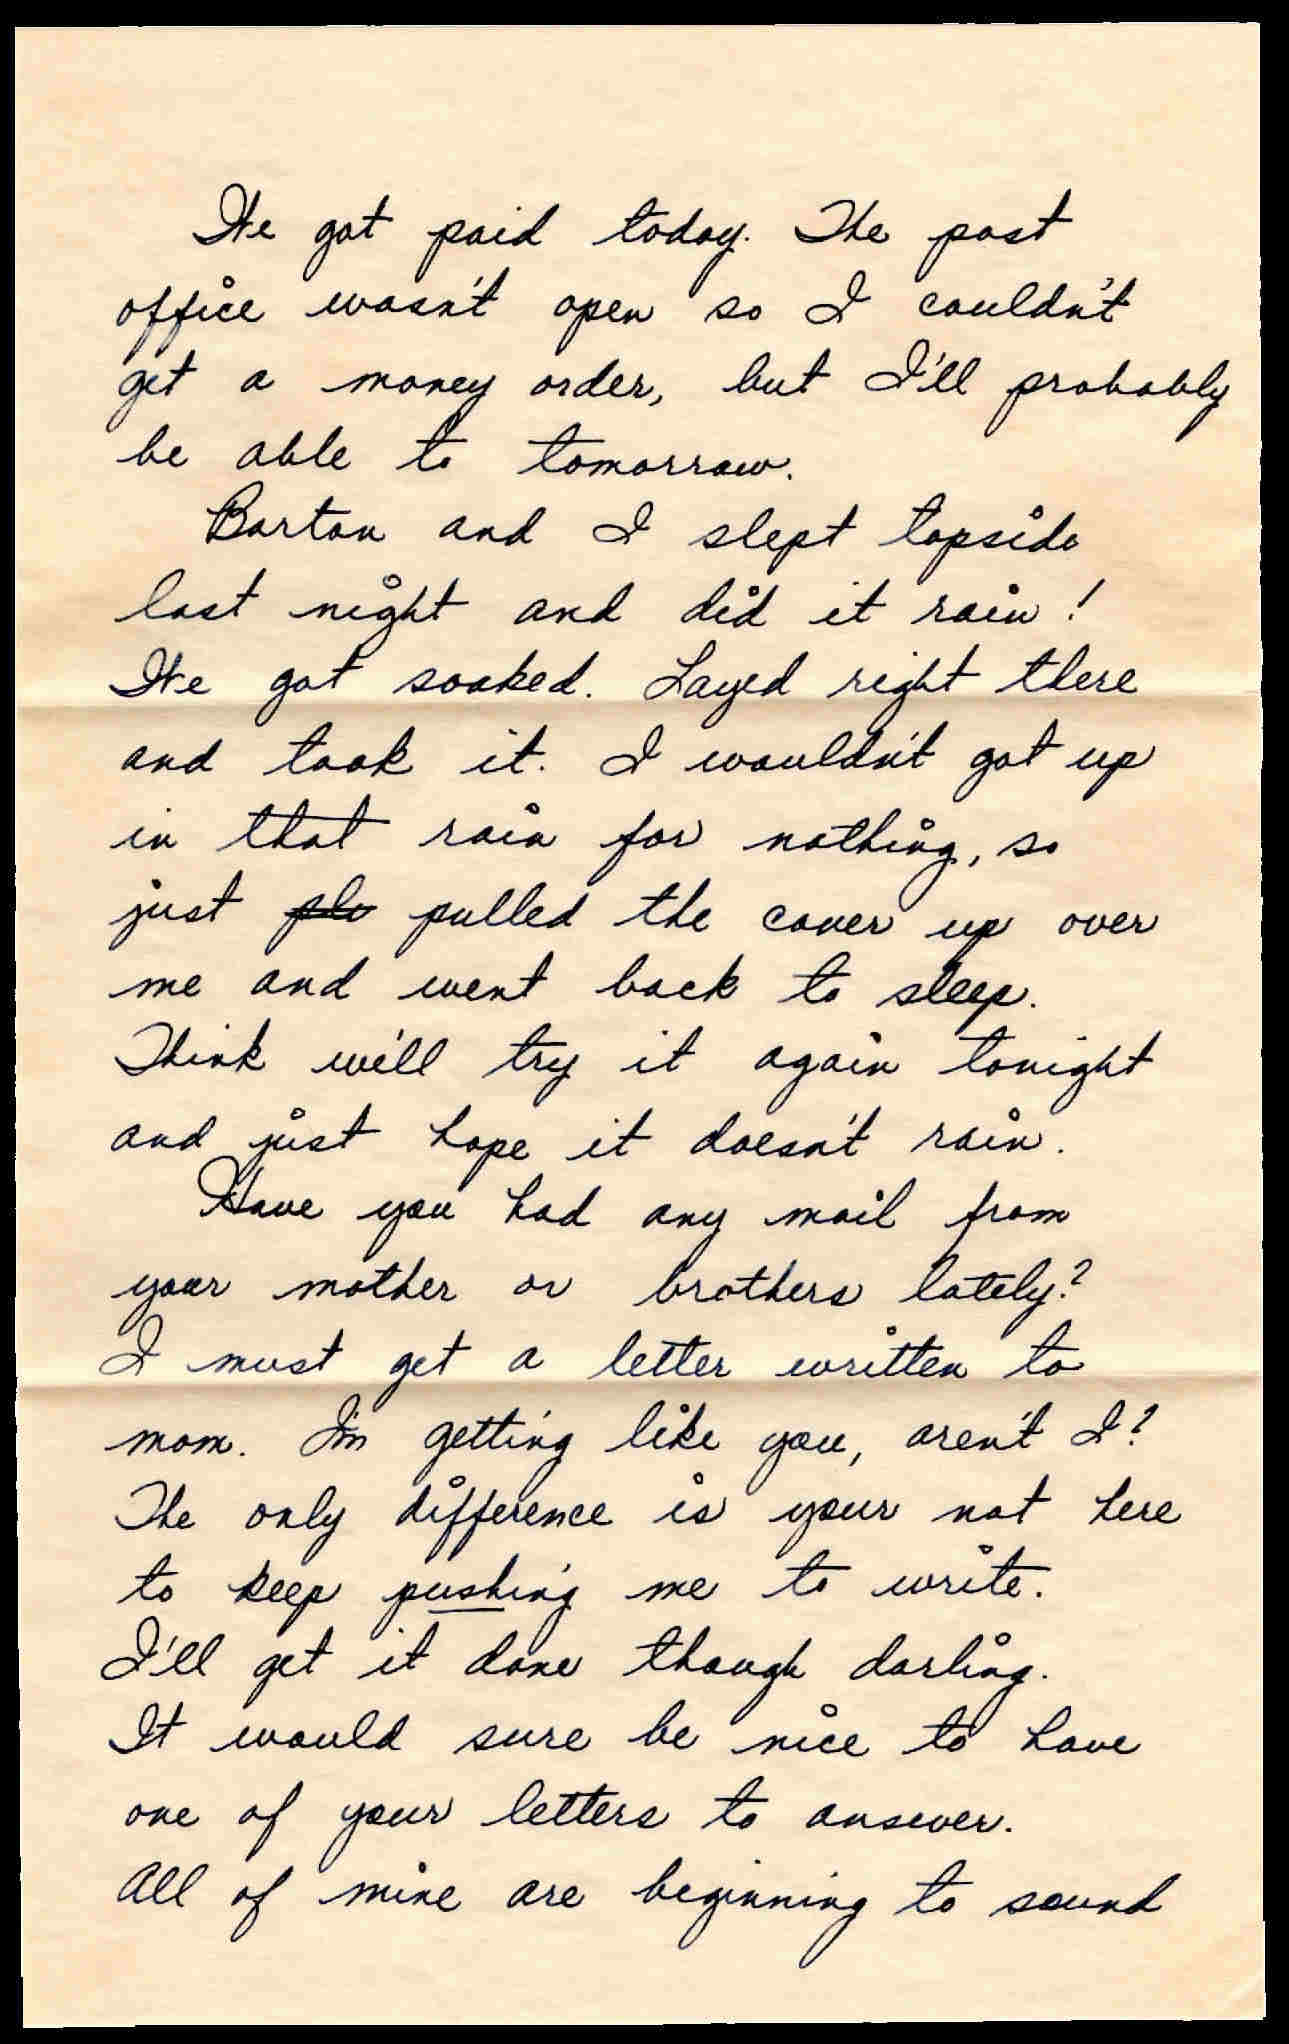 We got paid today. The post
office wasn't open so I couldn't
get a money order, but I'll probably
be able to tomorrow.
Barton and I slept topside
last night and did it rain!
We got soaked. Layed right there
and took it. I wouldn't got up
in that rain for nothing, so
just plu pulled the cover up over
me and went back to sleep.
Think we'll try it again tonight
and just hope it doesn't rain.
Have you had any mail from
your mother or brothers lately?
I must get a letter written to
mom. I'm getting like you, aren't I?
The only difference is your not here
to keep pushing me to write.
I'll get it done though darling.
It would sure be nice to have
one of your letters to answer.
All of mine are beginning to sound